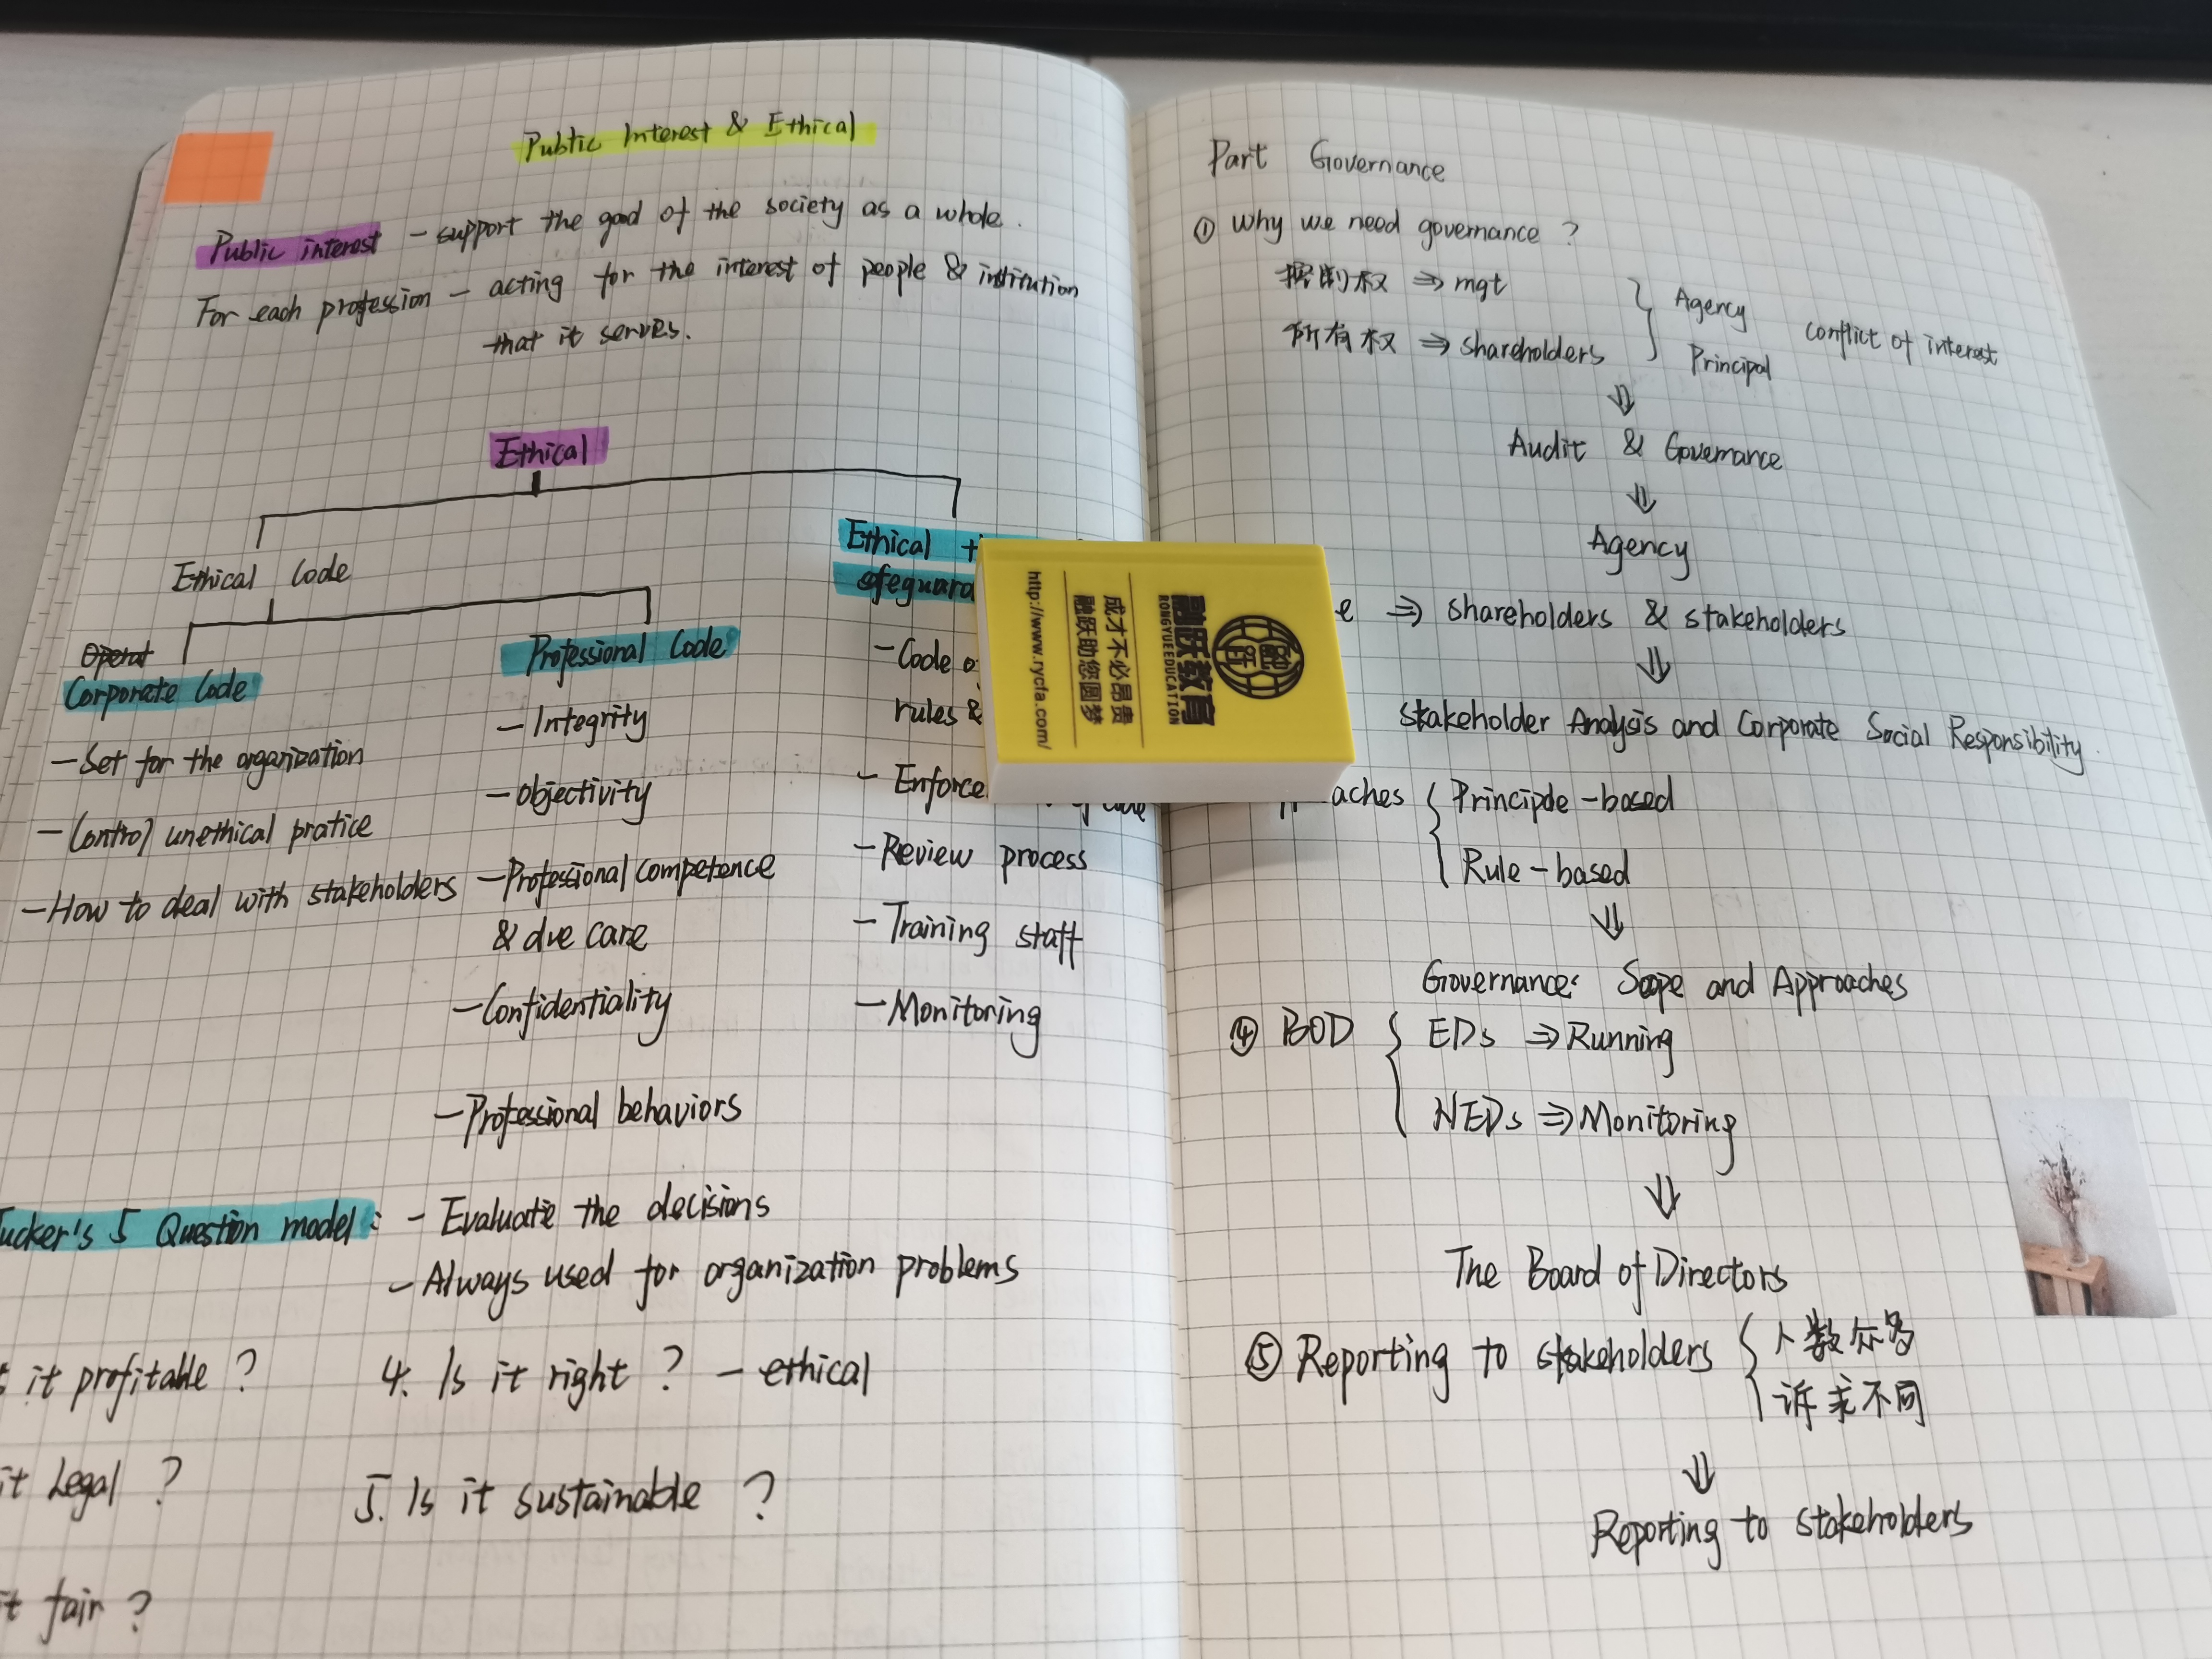 Public Interest & Ethical
Public interest - support the good of the society as a whole.
For each profession - acting for the interest of people & institution
that it serves.
Ethical
Ethical Code
Operat
Corporate Code
- Set for the organization
- Control unethical pratice
- How to deal with stakeholders
Professional Code
- Integrity
- Objectivity
- Professional competence
& due care
- Confidentiality
- Professional behaviors
Ethical
safeguard
- Code
rules &
- Enforce
- Review process
- Training staff
- Monitoring
ucker's 5 Question model: - Evaluate the decisions
- Always used for organization problems
it profitable?
it Legal?
it fair?
4. Is it right? - ethical
5. Is it sustainable?
Part Governance
① Why we need governance?
控制权 ⇒ mgt
所有权 ⇒ shareholders
Agency
Principal
conflict of interest
⇓
Audit & Governance
⇓
Agency
e ⇒ shareholders & stakeholders
⇓
Stakeholder Analysis and Corporate Social Responsibility.
aches { Principle-based
Rule-based
⇓
Governance: Scope and Approaches
④ BOD { EDs ⇒ Running
NEDs ⇒ Monitoring
⇓
The Board of Directors
⑤ Reporting to stakeholders { 人数众多
诉求不同
⇓
Reporting to stakeholders
融跃教育
RONGYUEEDUCATION
成才不必昂贵
融跃助您圆梦
http://www.rycfa.com/